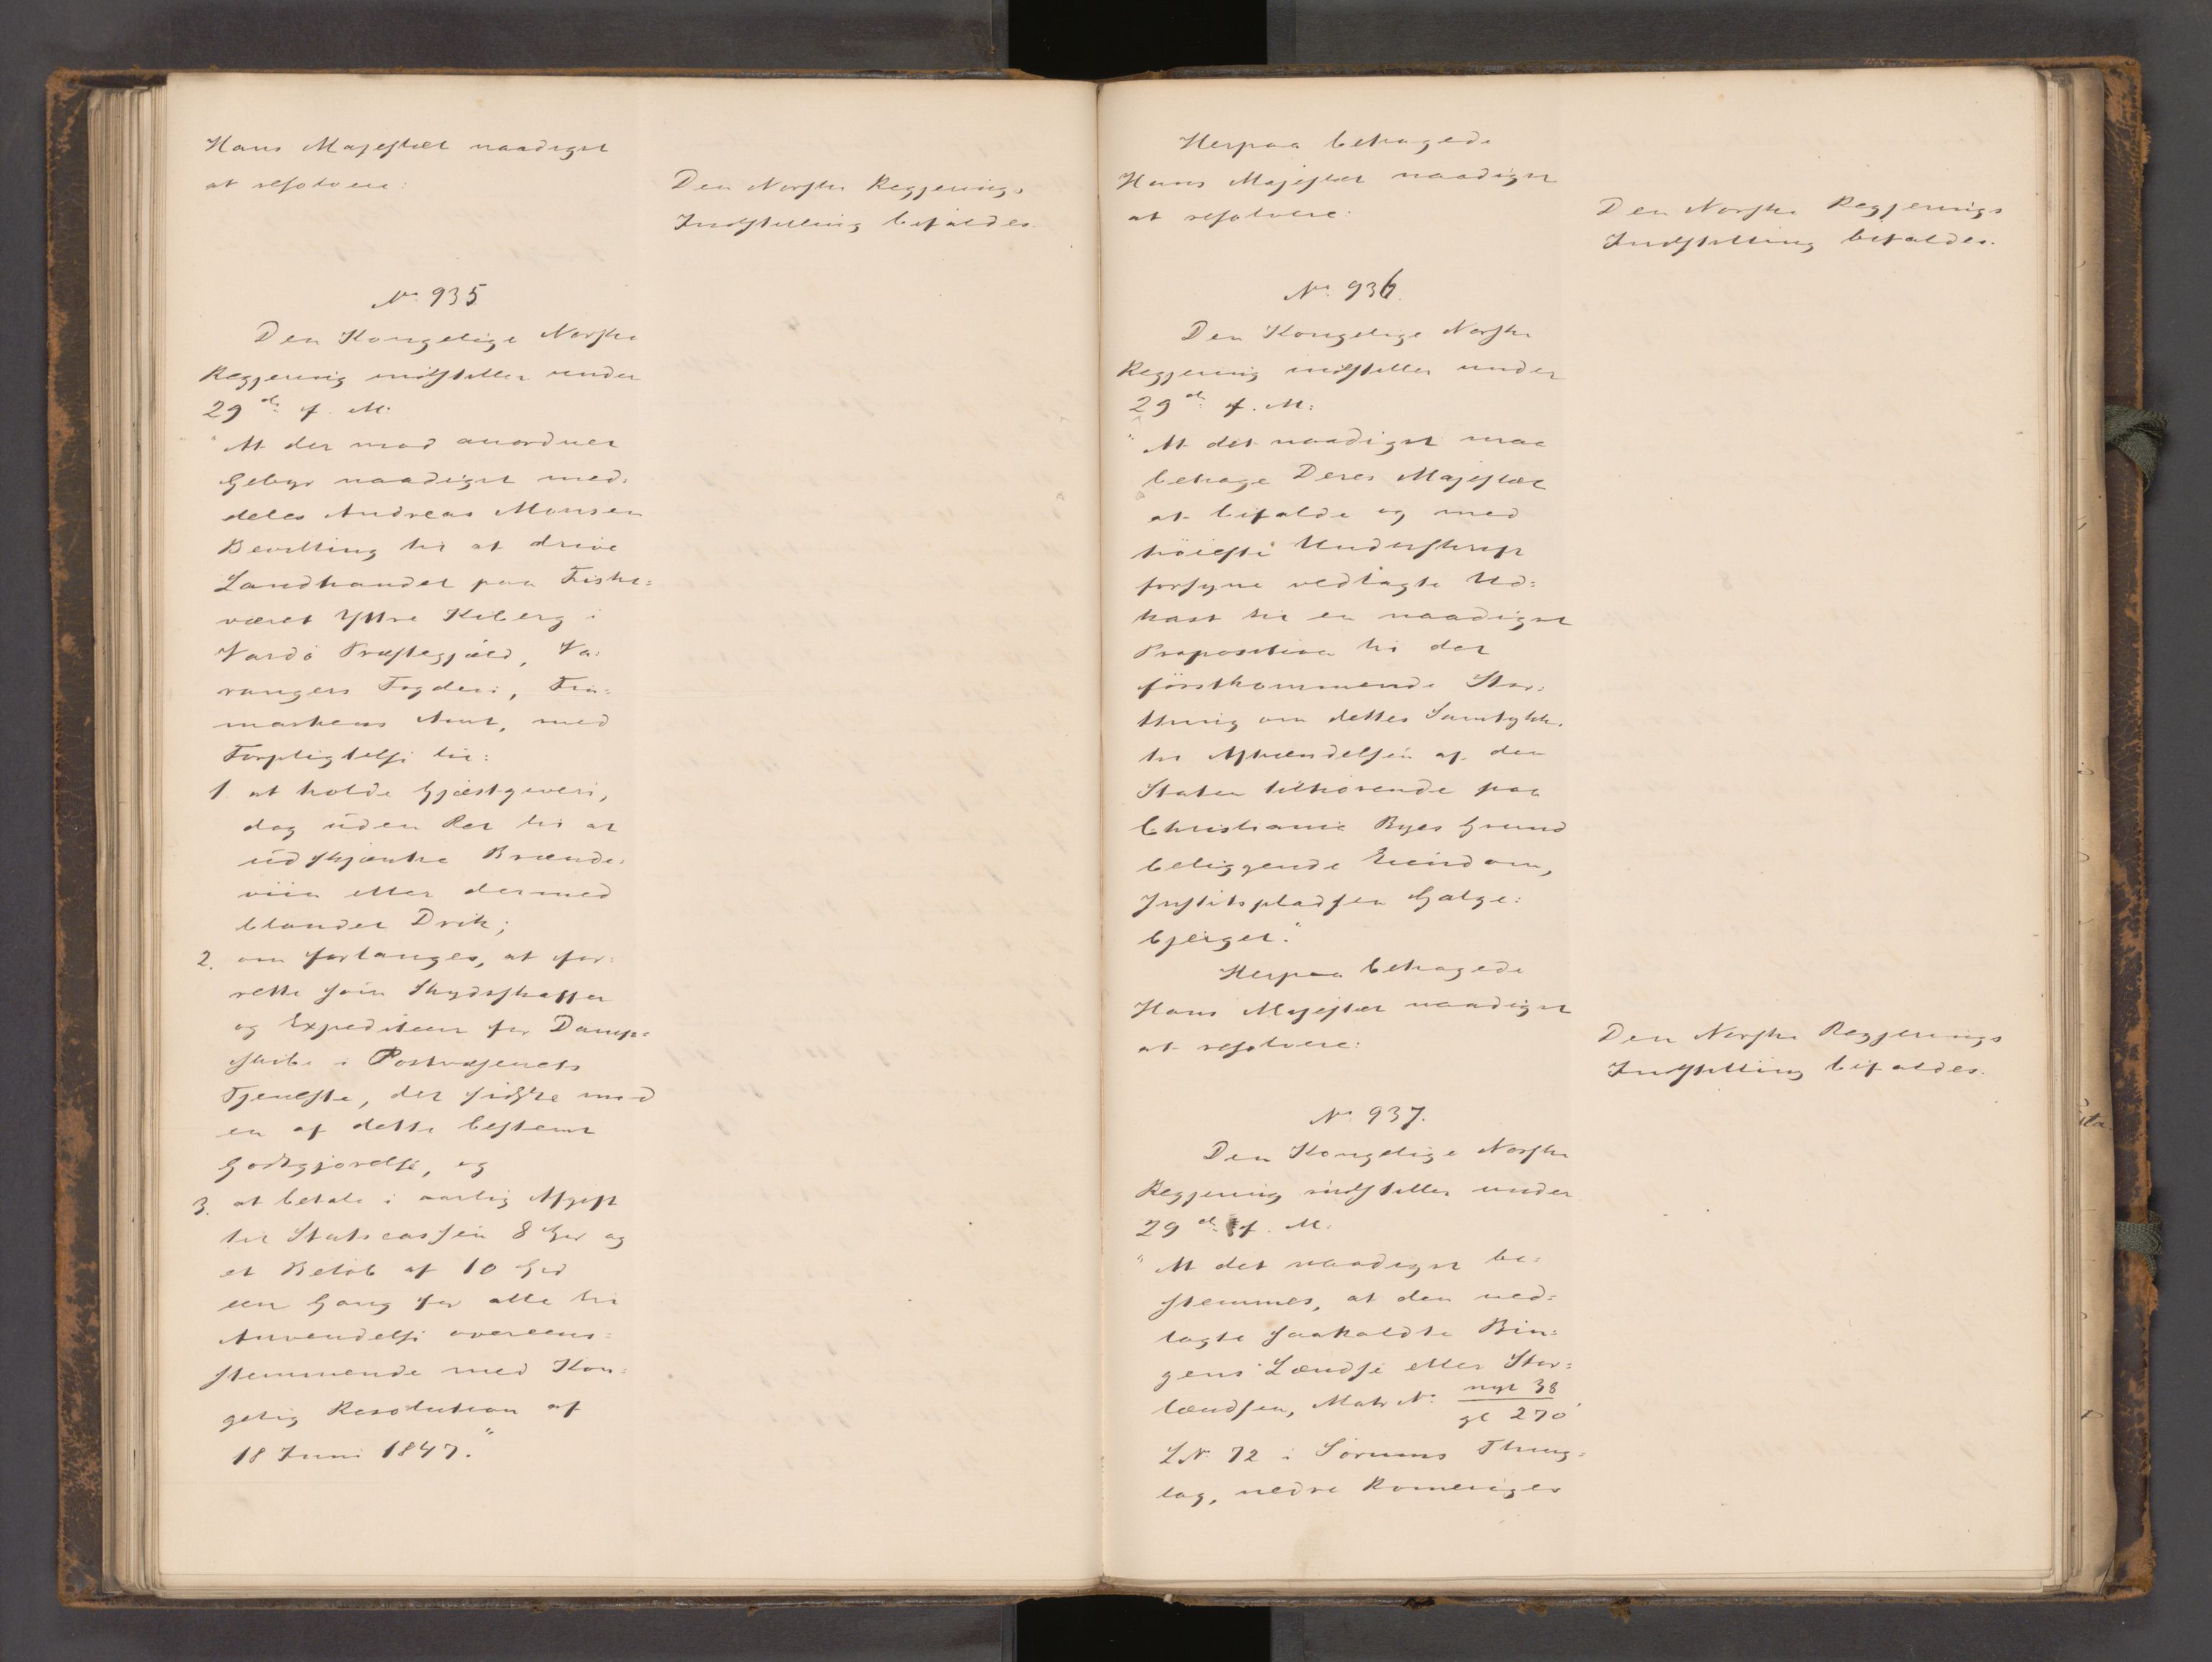 Hans Majestæt naadigst
at resolvere:
Den Norske Regjerings
Indstilling bifaldes.
No 935
Den Kongelige Norske
Regjering indstiller under
29de f. M.
"At der mod anordnet
Gebyr naadigst med-
deles Andreas Monsen
Bevilling til at drive
Landhandel paa Fiske-
været Yttre Kiberg i
Vardö Præstegjæld, Va-
rangers Fogderi, Fin-
markens Amt, med
Forpligtelse til:
1. at holde Gjæstgiveri,
dog uden Ret til at
udskjænke Brænde-
viin eller dermed
blandet Drik;
2. om forlanges, at for-
rette som Skydsskaffer
og Expediteur for Damp-
skibe i Postvæsenets
Tjeneste, det sidste mod
en af dette bestemt
Godtgjörelse, og
3. at betale i aarlig Afgift
til Statscassen 8 Spd og
et Belöb af 10 Spd
een Gang for alle til
Anvendelse overeens-
stemmende med Kon-
gelig Resolution af
18 Juni 1847."
Herpaa behagede
Hans Majestæt naadigst
at resolvere:
Den Norske Regjerings
Indstilling bifaldes.
No 936.
Den Kongelige Norske
Regjering indstiller under
29de f. M:
"At det naadigst maa
behage Deres Majestæt
at bifalde og med
höieste Underskrift
forsyne vedlagte Ud-
kast til en naadigst
Proposition til det
förstkommende Stor-
thing om dettes Samtykke
til Afhændelsen af den
Staten tilhörende paa
Christiania Byes Grund
beliggende Eiendom,
Justitspladsen Galge-
bjerget."
Herpaa behagede
Hans Majestæt naadigst
at resolvere:
Den Norske Regjerings
Indstilling bifaldes.
No 937.
Den Kongelige Norske
Regjering indstiller under
29de f. M:
"At det naadigst be-
stemmes, at den ned-
lagte saakaldte Bin-
gens Lændse eller Stor-
lændsen, Matr No nyt 38
gl 270,
L N 72 i Sörums Thing-
lag, nedre Romeriges